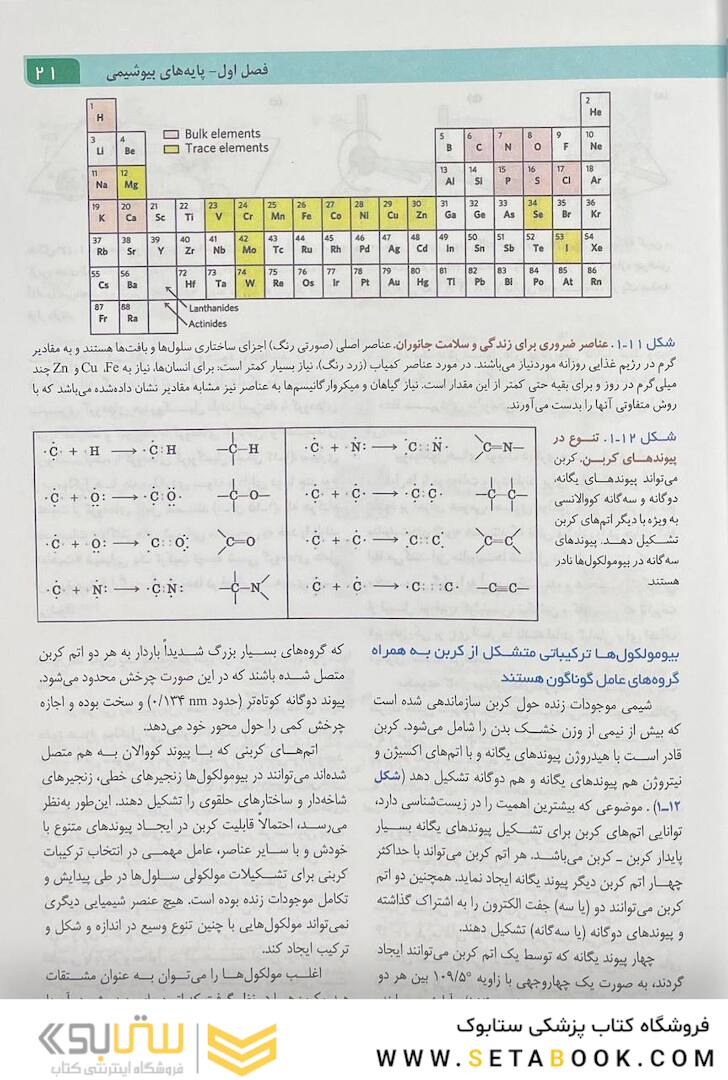 فصل اول- پایه‌های بیوشیمی
۲۱
1 2
H He
Bulk elements
Trace elements
3 4 5 6 7 8 9 10
Li Be B C N O F Ne
11 12 13 14 15 16 17 18
Na Mg Al Si P S Cl Ar
19 20 21 22 23 24 25 26 27 28 29 30 31 32 33 34 35 36
K Ca Sc Ti V Cr Mn Fe Co Ni Cu Zn Ga Ge As Se Br Kr
37 38 39 40 41 42 43 44 45 46 47 48 49 50 51 52 53 54
Rb Sr Y Zr Nb Mo Tc Ru Rh Pd Ag Cd In Sn Sb Te I Xe
55 56 72 73 74 75 76 77 78 79 80 81 82 83 84 85 86
Cs Ba Hf Ta W Re Os Ir Pt Au Hg Tl Pb Bi Po At Rn
87 88
Fr Ra
Lanthanides
Actinides
شکل ۱۱-۱. عناصر ضروری برای زندگی و سلامت جانوران. عناصر اصلی (صورتی رنگ) اجزای ساختاری سلول‌ها و بافت‌ها هستند و به مقادیر
گرم در رژیم غذایی روزانه موردنیاز می‌باشند. در مورد عناصر کمیاب (زرد رنگ)، نیاز بسیار کمتر است: برای انسان‌ها، نیاز به Fe، Cu و Zn چند
میلی‌گرم در روز و برای بقیه حتی کمتر از این مقدار است. نیاز گیاهان و میکروارگانیسم‌ها به عناصر نیز مشابه مقادیر نشان داده‌شده می‌باشد که با
روش متفاوتی آنها را بدست می‌آورند.
شکل ۱۲-۱. تنوع در
پیوندهای کربن. کربن
می‌تواند پیوندهای یگانه،
دوگانه و سه‌گانه کووالانسی
به ویژه با دیگر اتم‌های کربن
تشکیل دهد. پیوندهای
سه‌گانه در بیومولکول‌ها نادر
هستند
·Ċ· + H → ·Ċ:H –C–H
·Ċ· + ·Ö: → ·Ċ:Ö· –C–O–
·Ċ· + ·Ö: → ·Ċ::Ö: C=O
·Ċ· + ·N: → ·Ċ:N: –C–N
·Ċ· + ·N: → ·C::N· C=N–
·Ċ· + ·Ċ· → ·Ċ:Ċ· –C–C–
·Ċ· + ·Ċ· → ·C::C· C=C
·Ċ· + ·Ċ· → ·C:::C· –C≡C–
بیومولکول‌ها ترکیباتی متشکل از کربن به همراه
گروه‌های عامل گوناگون هستند
شیمی موجودات زنده حول کربن سازماندهی شده است
که بیش از نیمی از وزن خشک بدن را شامل می‌شود. کربن
قادر است با هیدروژن پیوندهای یگانه و با اتم‌های اکسیژن و
نیتروژن هم پیوندهای یگانه و هم دوگانه تشکیل دهد (شکل
۱۲-۱). موضوعی که بیشترین اهمیت را در زیست‌شناسی دارد،
توانایی اتم‌های کربن برای تشکیل پیوندهای یگانه بسیار
پایدار کربن ـ کربن می‌باشد. هر اتم کربن می‌تواند با حداکثر
چهار اتم کربن دیگر پیوند یگانه ایجاد نماید. همچنین دو اتم
کربن می‌توانند دو (یا سه) جفت الکترون را به اشتراک گذاشته
و پیوندهای دوگانه (یا سه‌گانه) تشکیل دهند.
چهار پیوند یگانه که توسط یک اتم کربن می‌توانند ایجاد
گردند، به صورت یک چهاروجهی با زاویه ۱۰۹/۵° بین هر دو
که گروه‌های بسیار بزرگ شدیداً باردار به هر دو اتم کربن
متصل شده باشند که در این صورت چرخش محدود می‌شود.
پیوند دوگانه کوتاه‌تر (حدود ۰/۱۳۴ nm) و سخت بوده و اجازه
چرخش کمی را حول محور خود می‌دهد.
اتم‌های کربنی که با پیوند کووالان به هم متصل
شده‌اند می‌توانند در بیومولکول‌ها زنجیرهای خطی، زنجیرهای
شاخه‌دار و ساختارهای حلقوی را تشکیل دهند. این‌طور به‌نظر
می‌رسد، احتمالاً قابلیت کربن در ایجاد پیوندهای متنوع با
خودش و با سایر عناصر، عامل مهمی در انتخاب ترکیبات
کربنی برای تشکیلات مولکولی سلول‌ها در طی پیدایش و
تکامل موجودات زنده بوده است. هیچ عنصر شیمیایی دیگری
نمی‌تواند مولکول‌هایی با چنین تنوع وسیع در اندازه و شکل و
ترکیب ایجاد کند.
اغلب مولکول‌ها را می‌توان به عنوان مشتقات
فروشگاه کتاب پزشکی ستابوک
WWW.SETABOOK.COM
ستابوک
فروشگاه اینترنتی کتاب